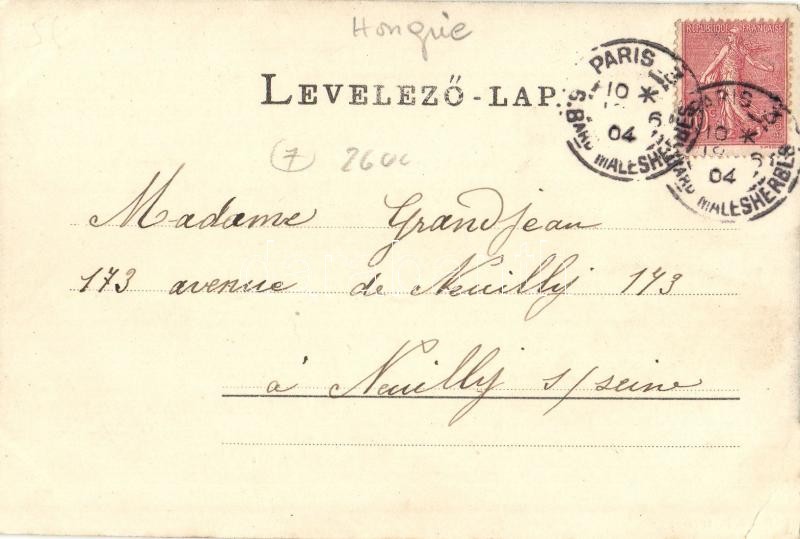 Hongrie
RÉPUBLIQUE FRANÇAISE
PARIS
10 *
04
5. BARD MALESHERBES
PARIS
10 *
04
BARD MALESHERBES
LEVELEZŐ-LAP.
7 2600
Madame Grandjean
173 avenue de Neuilly 173
à Neuilly s/seine